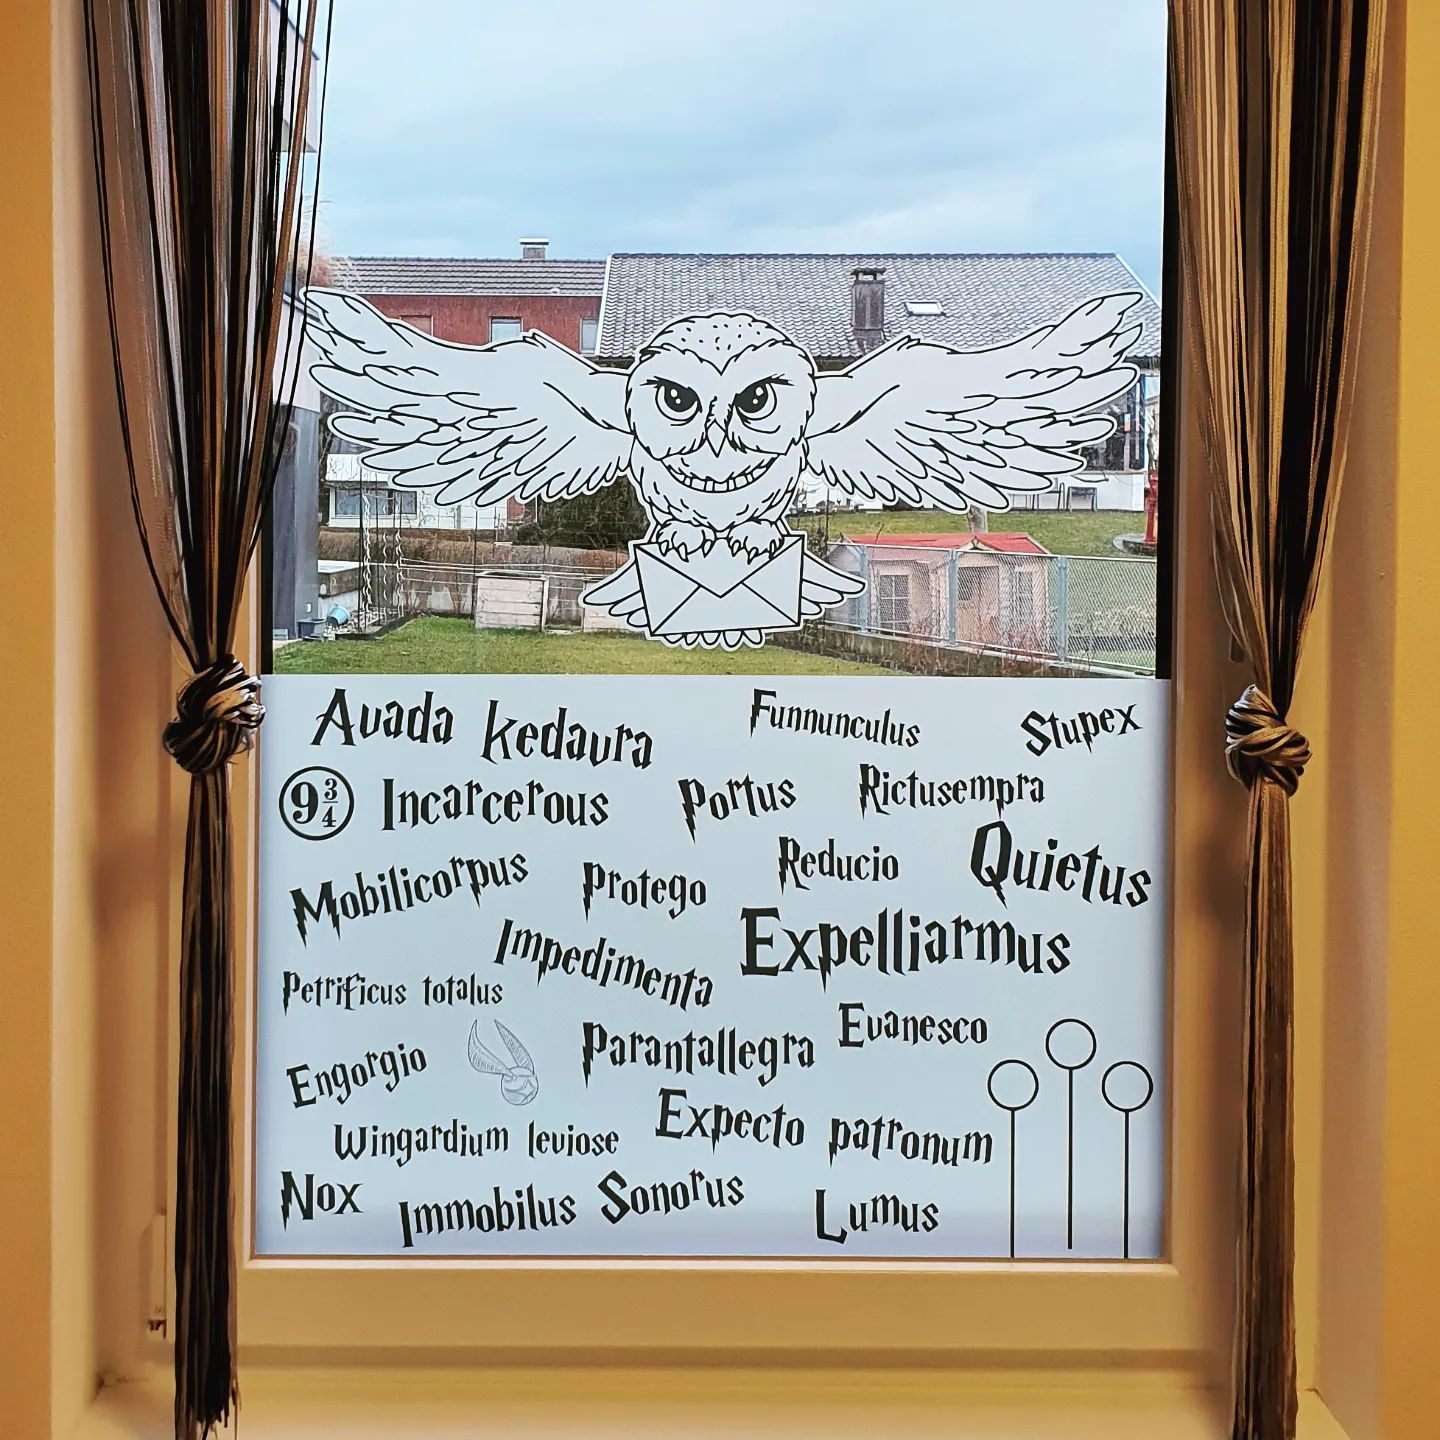 Avada kedavra
Funnunculus
Stupex
9 3/4
Incarcerous
Portus
Rictusempra
Mobilicorpus
Protego
Reducio
Quietus
Impedimenta
Expelliarmus
Petrificus totalus
Evanesco
Engorgio
Parantallegra
Wingardium leviose
Expecto patronum
Nox
Immobilus
Sonorus
Lumus